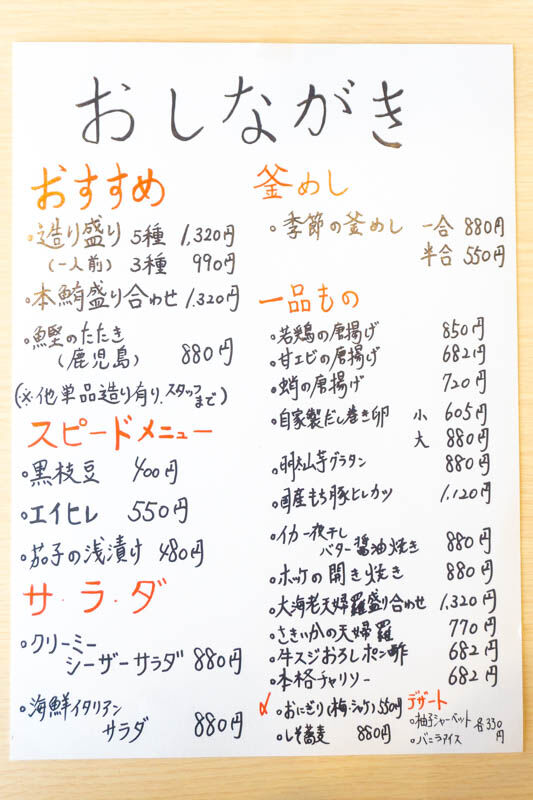 おしながき
おすすめ
・造り盛り 5種 1,320円
(一人前) 3種 990円
・本鮪盛り合わせ 1,320円
・鰹のたたき
(鹿児島) 880円
(※他単品造り有り、スタッフまで)
スピードメニュー
・黒枝豆 400円
・エイヒレ 550円
・茄子の浅漬け 480円
サ・ラ・ダ
・クリーミー
シーザーサラダ 880円
・海鮮イタリアン
サラダ 880円
釜めし
・季節の釜めし 一合 880円
半合 550円
一品もの
・若鶏の唐揚げ 850円
・甘エビの唐揚げ 682円
・蛸の唐揚げ 720円
・自家製だし巻き卵 小 605円
大 880円
・明太山芋グラタン 880円
・国産もち豚ヒレカツ 1,120円
・イカ一夜干し
バター醤油焼き 880円
・ホッケの開き焼き 880円
・大海老天婦羅盛り合わせ 1,320円
・さきいかの天婦羅 770円
・牛スジおろしポン酢 682円
・本格チャリソー 682円
〆 ・おにぎり(梅・シャケ) 550円
・しそ蕎麦 880円
デザート
・柚子シャーベット 各330円
・バニラアイス